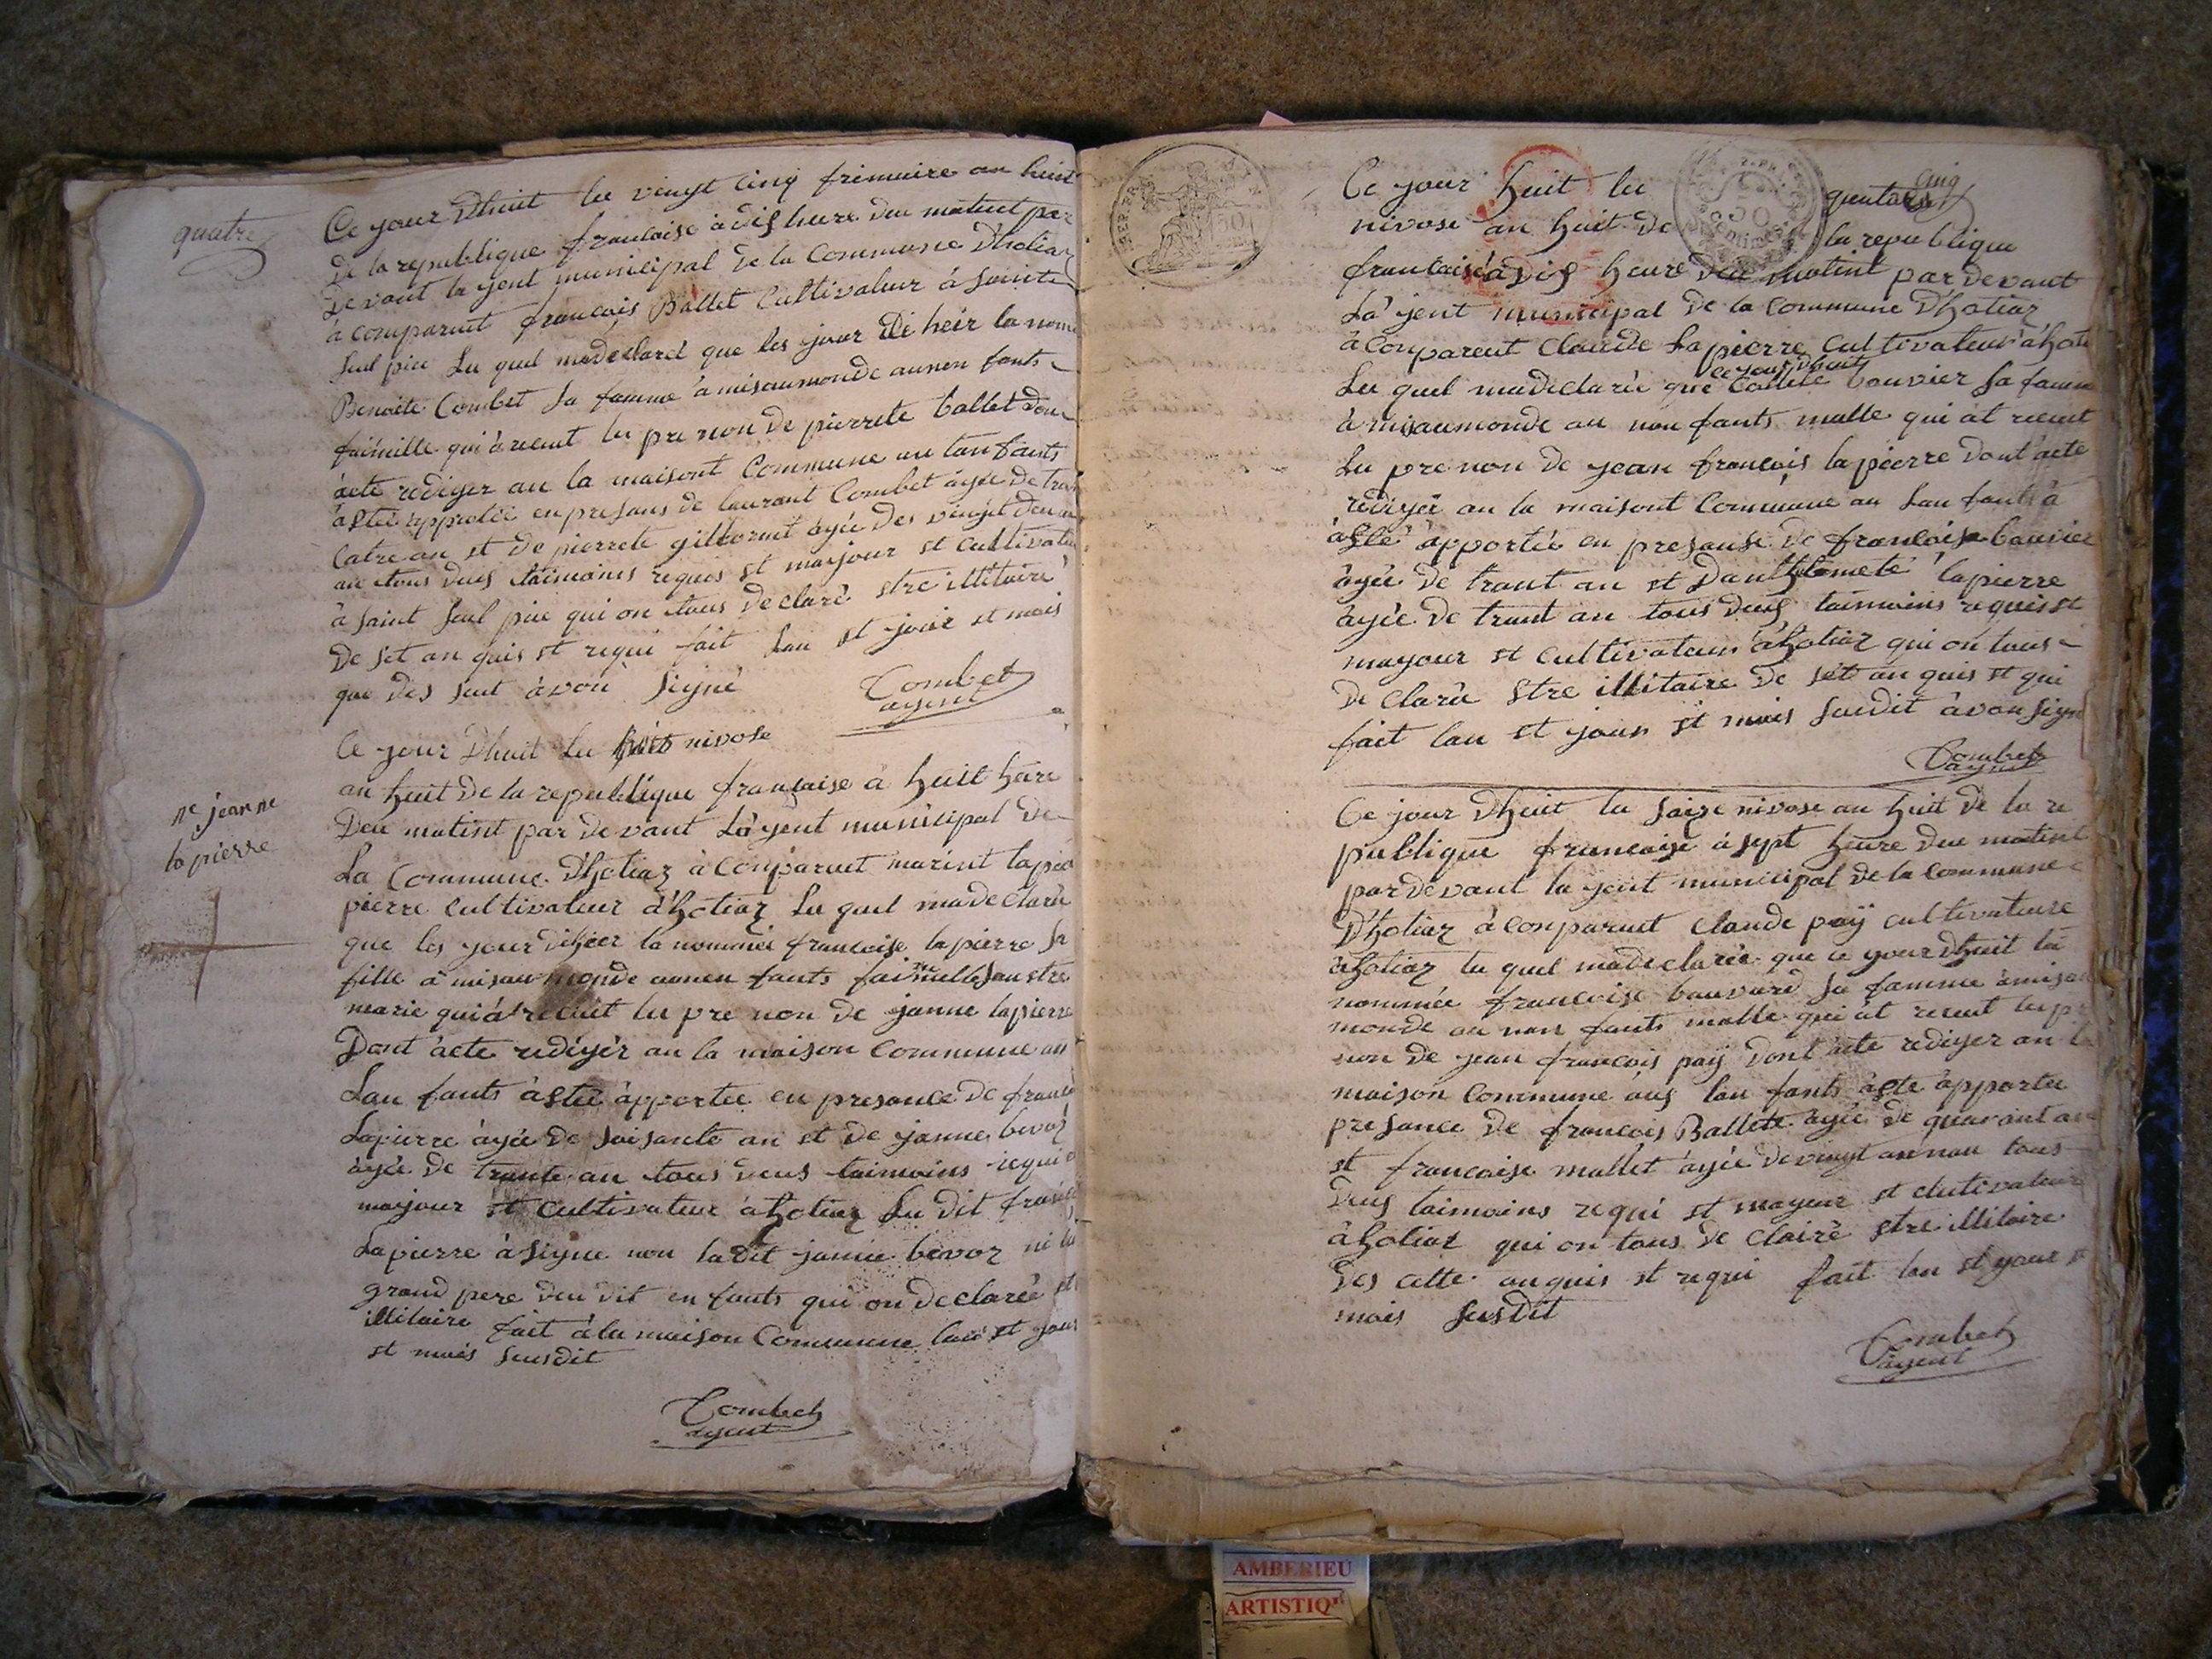 quatre
Ce jour Dhuit lu vingt cinq frimaire an huit
De la republique francaise à dis heure deu matint par
Devant la jent municipal De la Commune Dhotiaz
à comparuit francois Ballet Cultivateur à Sainte
Sul pice Lu quel madeclaré que les jour di heir la nome
Benoite Combet Sa famme à misaumonde aunen fants
faimille qui à recut lu pre non De pierrete ballet Don
acte rediger au la maisont Commune au lan fants
à stée apportée en presans de laurant Combet agée De tran
Catre an et De pierrete agée Des vingt Deu
an tous deus taimoins requis et majour et Cultivateu
à saint Sul pice qui on tous Declaré stre illitaire
De set an quis et requi fait Lan et jour et mois
que des sut avon Signé
Combet
agent
Ce jour Dhuit Lu huit nivose
an huit De la republique francaise à huit heire
Deu matint par devant Lagent municipal De
La Commune Dhotiaz à Comparuit marint lapie
pierre Cultivateur à hotiaz Lu quel madeclaru
que les jour diheir la nommée francoise lapierre Sa
fille à misau monde aunen fants faimelle Sans stre
marie qui à recuit lu pre non De janne lapierre
Dont acte redigér au la maison Commune an
Lan fants à stée àpportée en presance De francoi
Lapierre agée De Soisante an et De janne bevoz
agée De trante an tous deus taimoins requi
majour et Cultivateur à hotiaz Lu dit francoi
Lapierre à signe non ladit janne bevoz ni lu
grand pere deu dit en fants qui on declarée st
illitaire fait à la maison Commune lan et jour
et mois Susdit
Combet
agent
ne jeanne
la pierre
cinq
REP. FRA.
50
Ce jour huit lu quatorse
nivose an huit de la republique
francaise à dis heure deu matint par devant
La jent municipal De la Commune Dhotiaz
à Conparent Claude Lapierre Cultivateur à hoti
ce jour dhuit
Lu quel madeclarée que bouvier Sa famme
à misaumonde au non fants malle qui at recut
Lu pre non De jean francois lapierre Dont acte
redigéi au la maisont Commune au Lan fants à
àsté àpportée en presanse De francoise bouvier
àgée De trant an et Danthelmeté lapierre
àgée De trant an tous deus taimoins requis et
mayour et Cultivateur à hotiaz qui on tous
De claru stre illitaire De set an quis et qui
fait lan et jour et mois Susdit àvon sign
Combet
agent
Ce jour Dhuit lu saize nivose an huit De la re
publique francaise à sept heure deu matint
par devant la jent municipal De la Commune
Dhotiaz à Conparuit Claude paÿ cultivateure
àhotiaz lu quel madeclarée que ce jour dhuit la
nommée francoise bouvard Sa famme à misau
monde au non fants malle qui at recut lu pr
non De jean francois paÿ Dont acte rediger an l
maison Commune aus lan fants àste àpportée
presance De francois Ballett àgée De quarant an
et francoise mallet àgée De vingt an tous
Deus taimoins requi et mayeur et clutivateur
à hotiaz qui on tous De clairé stre illitaire
Des cette an quis et requi fait lan et jour et
mais Susdit
Combet
agent
AMBERIEU
ARTISTIQ